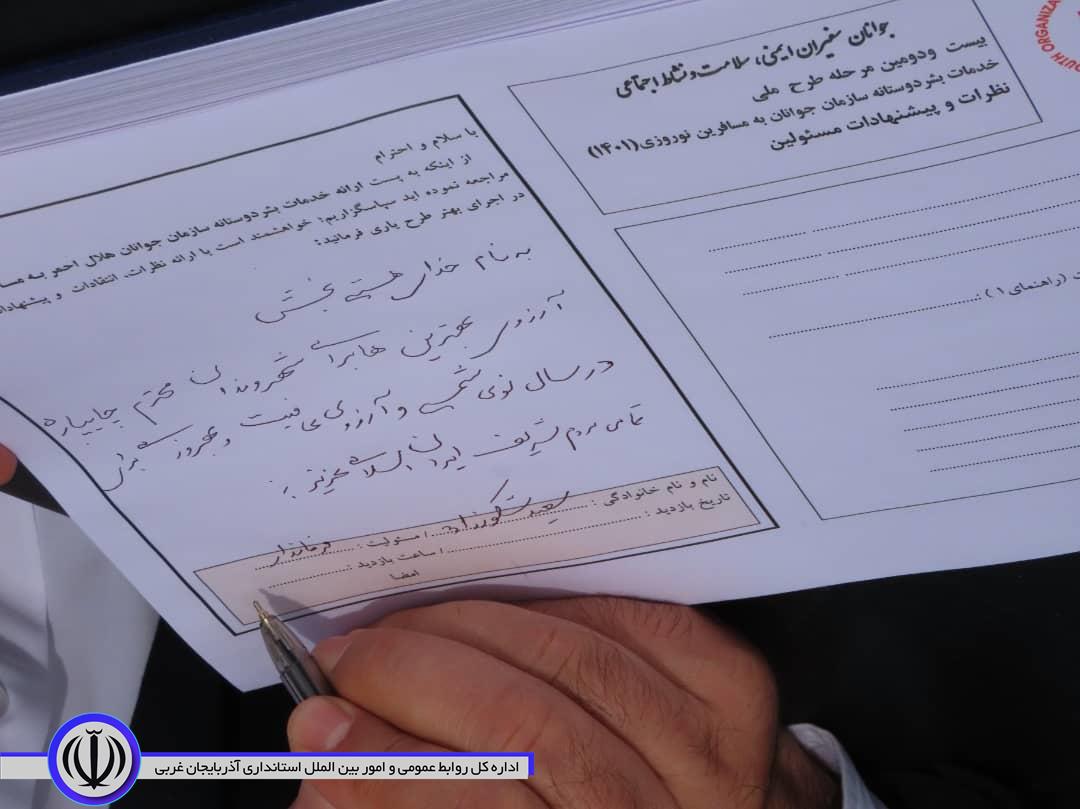 YOUTH ORGANIZA
جوانان سفیران ایمنی، سلامت و نشاط اجتماعی
بیست ودومین مرحله طرح ملی
خدمات بشردوستانه سازمان جوانان به مسافرین نوروزی(۱۴۰۱)
نظرات و پیشنهادات مسئولین
(راهنمای ۱) :
با سلام و احترام
از اینکه به پست ارائه خدمات بشردوستانه سازمان جوانان هلال احمر به
مراجعه نموده اید سپاسگزاریم؛ خواهشمند است با ارائه نظرات، انتقادات و
در اجرای بهتر طرح یاری فرمائید:
به نام خدای هستی بخش
آرزوی بهترین ها برای شهروندان محترم چایپاره
در سال نوی شمسی و آرزوی و بهروزی برای
تمامی مردم شریف ایران اسلامی عزیز
نام و نام خانوادگی : سعید / مسئولیت : فرماندار
تاریخ بازدید : / ساعت بازدید :
امضا
اداره کل روابط عمومی و امور بین الملل استانداری آذربایجان غربی